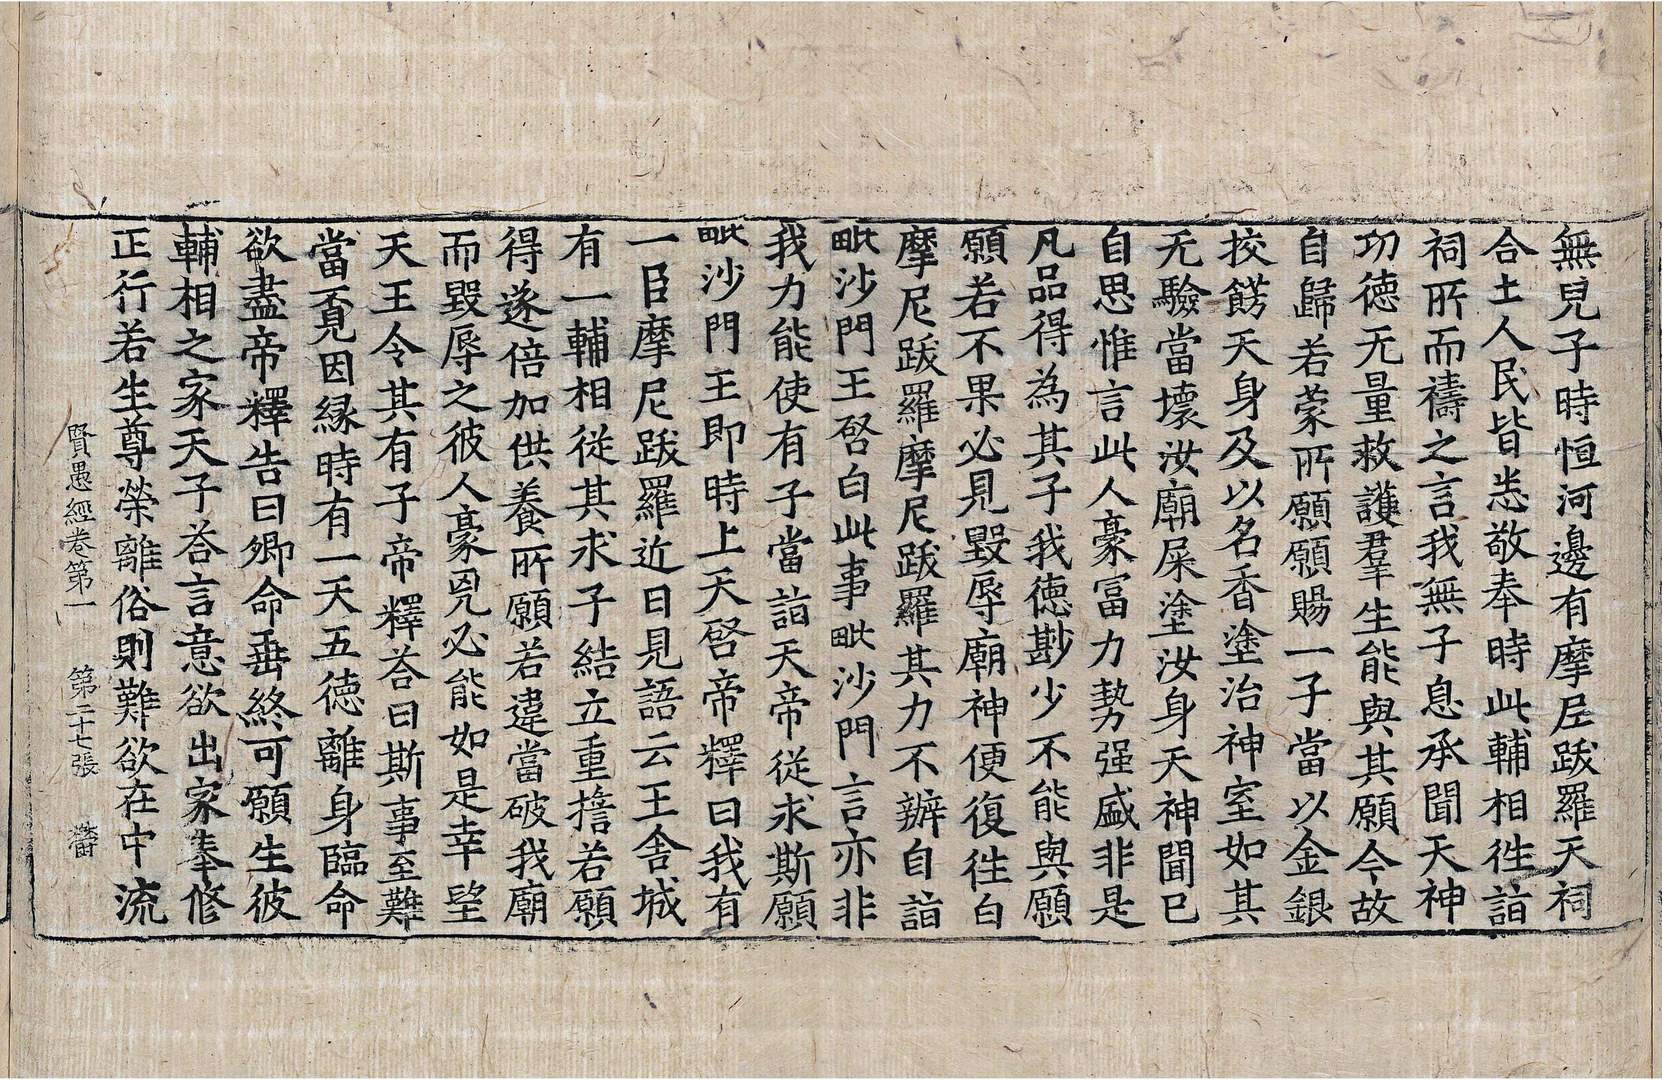 無兒子時恒河邊有摩尼跋羅天祠
合土人民皆悉敬奉時此輔相徃詣
祠所而禱之言我無子息承聞天神
功徳无量救護羣生能與其願今故
自歸若蒙所願願賜一子當以金銀
挍餝天身及以名香塗治神室如其
无驗當壞汝廟屎塗汝身天神聞已
自思惟言此人豪冨力勢强盛非是
凡品得為其子我徳尠少不能與願
願若不果必見毀辱廟神便復徃白
摩尼跋羅摩尼跋羅其力不辦自詣
毗沙門王啓白此事毗沙門言亦非
我力能使有子當詣天帝從求斯願
毗沙門王即時上天啓帝釋曰我有
一臣摩尼跋羅近日見語云王舍城
有一輔相從其求子結立重擔若願
得遂倍加供養所願若違當破我廟
而毀辱之彼人豪兇必能如是幸望
天王令其有子帝釋荅曰斯事至難
當覔因縁時有一天五徳離身臨命
欲盡帝釋告曰卿命垂終可願生彼
輔相之家天子荅言意欲出家奉修
正行若生尊榮離俗則難欲在中流
賢愚經卷第一 第二十七張